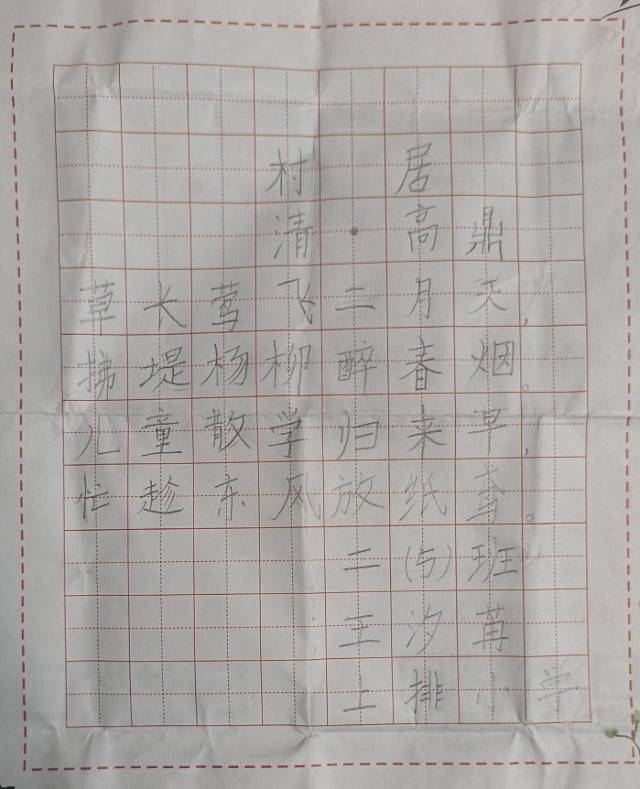 村居
清·高鼎
草长莺飞二月天，
拂堤杨柳醉春烟。
儿童散学归来早，
忙趁东风放纸鸢。
二(5)班
王汐苒
上排小学